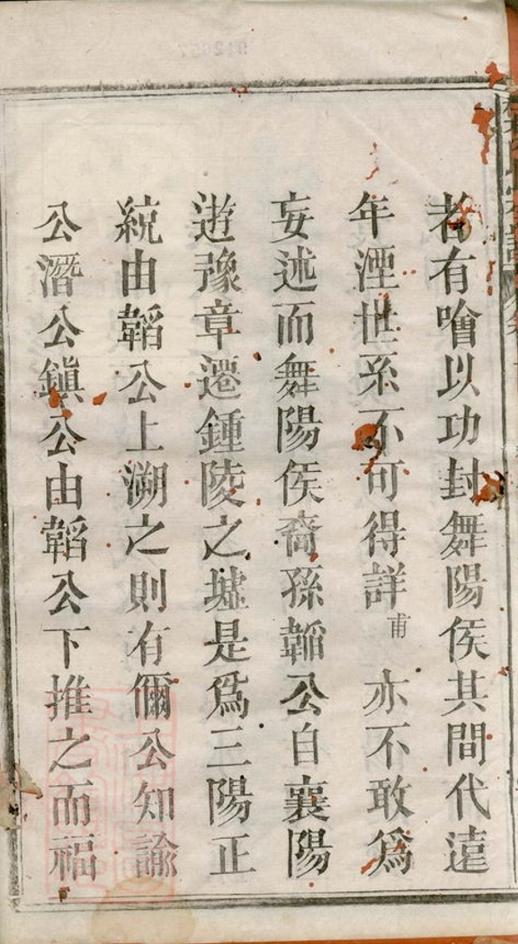 者有噲以功封舞陽侯其間代遠
年湮世系不可得詳甫亦不敢爲
妄述而舞陽侯裔孫韜公自襄陽
遊豫章遷鍾陵之墟是爲三陽正
統由韜公上溯之則有儞公知諭
公潛公鎮公由韜公下推之而福